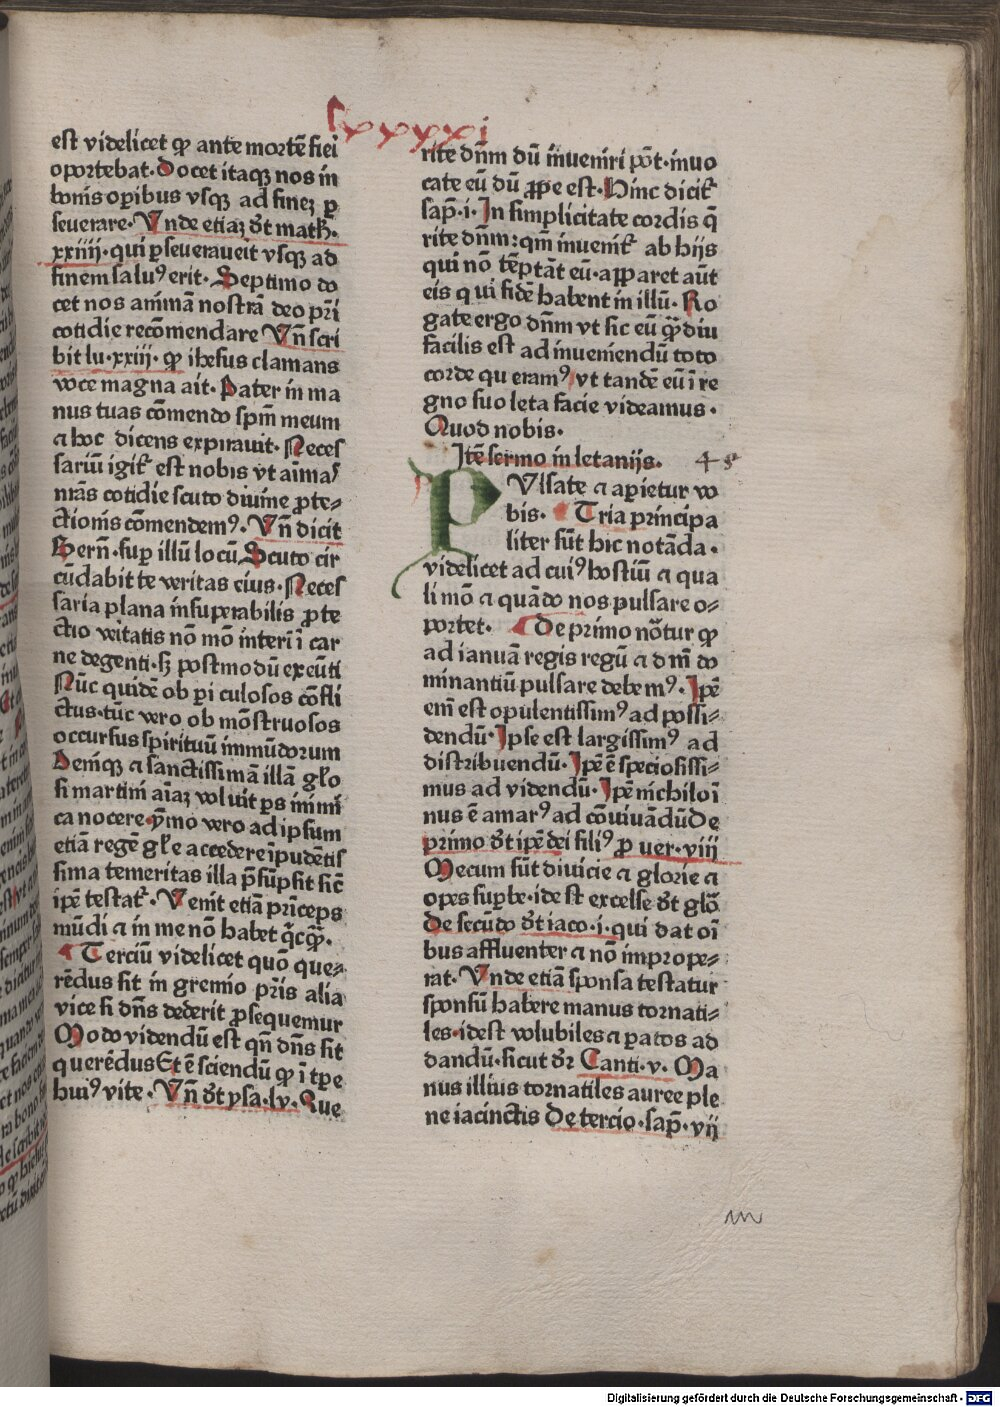 est videlicet ꝙ ante mortē fiei
oportebat. Docet itaqꝫ nos in
bonis opibus vsqꝫ ad finez ꝑ
seuerare. Vnde etiaz dr̄ math.
xxiiij. qui ꝑseueraueit vsqꝫ ad
finem saluꝰ erit. Septimo do
cet nos animā nostrā deo pr̄i
cotidie recōmendare Vn̄ scri
bit lu. xxiij. ꝙ ihesus clamans
voce magna ait. Pater in ma
nus tuas cōmendo spm̄ meum
⁊ hoc dicens expirauit. Neces
sariū igit᷑ est nobis vt aīmas
nrās cotidie scuto diuine ꝓte⸗
ctionis cōmendemꝰ. Vn̄ dicit
Bern̄. suꝑ illū locū, Scuto cir
cūdabit te veritas eius. Neces
saria plana insuꝑabilis ꝓte
ctio veitatis nō mō interī ī car
ne degenti. sꝫ postmodū exeūti
Nūc quidē ob ꝑi culosos cōfli
ctus. tūc vero ob mōstruosos
occursus spirituū immūdorum
Deniqꝫ ⁊ sanctissimā illā glo
si martini aīaz voluit ꝑs inimi
ca nocere. ymo vero ad ipsum
etiā regē gl̄e accedere īpudētis
sima temeritas illa p̄sūpsit sic̄
ipē testat᷑. Venit etiā prīceps
mūdi ⁊ in me nō habet q̄cq̄.
Terciū videlicet quo que⸗
rēdus sit in gremio pr̄is alia
vice si dn̄s dederit ꝓsequemur
Modo videndū est qn̄ dn̄s sit
querēdus Et ē sciendū ꝙ ī tꝑe
huiꝰ vite. Vn̄ dr̄ ysa. lv. Que
rite dn̄m dū inueniri pōt. inuo
cate eū dū ꝓpe est. Hinc dicit᷑
sap̄. i. In simplicitate cordis q̄
rite dn̄m: qm̄ inuenit᷑ ab hijs
qui nō tēptāt eū. apparet aūt
eis qui fidē habent in illū. Ro
gate ergo dn̄m vt sic eū q̄ diu
facilis est ad inueniendū toto
corde queramꝰ vt tandē eū ī re
gno suo leta facie videamus.
Quod nobis.
Itē sermo in letanijs.
PVlsate ⁊ aperietur vo
bis. Tria principa
liter sūt hic notāda.
videlicet ad cuiꝰ hostiū ⁊ qua
li mō ⁊ quādo nos pulsare o⸗
portet. De primo nōtur ꝙ
ad ianuā regis regū ⁊ dn̄i do
minantiū pulsare debemꝰ. Ipē
em̄ est opulentissimꝰ ad possi⸗
dendū. Ipse est largissimꝰ ad
distribuendū. Ipē ē speciosissi⸗
mus ad videndū. Ipē nichiloī
nus ē amarꝰ ad cōuiuādū De
primo dr̄ ipē dei filiꝰ ꝓuer. viij
Mecum sūt diuicie ⁊ glorie ⁊
opes suꝑbe. idest excelse dr̄ glō
De secūdo dr̄ iaco. i. qui dat oī
bus affluenter ⁊ nō impropе⸗
rat. Vnde etiā sponsa testatur
sponsū habere manus tornati⸗
les. idest volubiles ⁊ ꝑatos ad
dandū. sicut dr̄ Canti. v. Ma
nus illius tornatiles auree ple
ne iacinctis De tercio. sap̄. vij
Digitalisierung gefördert durch die Deutsche Forschungsgemeinschaft - DFG